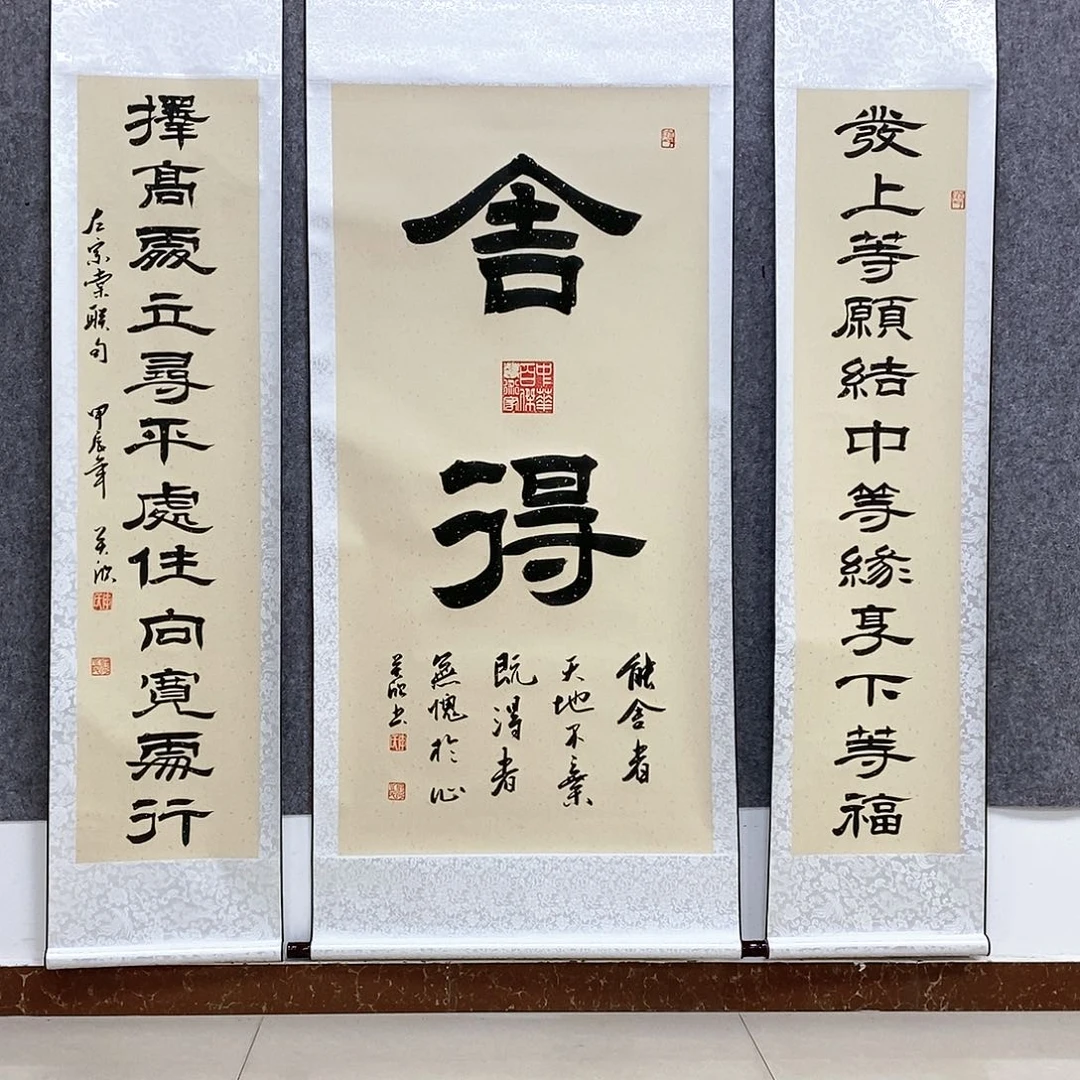 發上等願結中等緣享下等福
舍得
中華百傑藝術家
能舍者
天地不棄
既得者
無愧於心
擇高處立尋平處住向寬處行
左宗棠联句 甲辰年